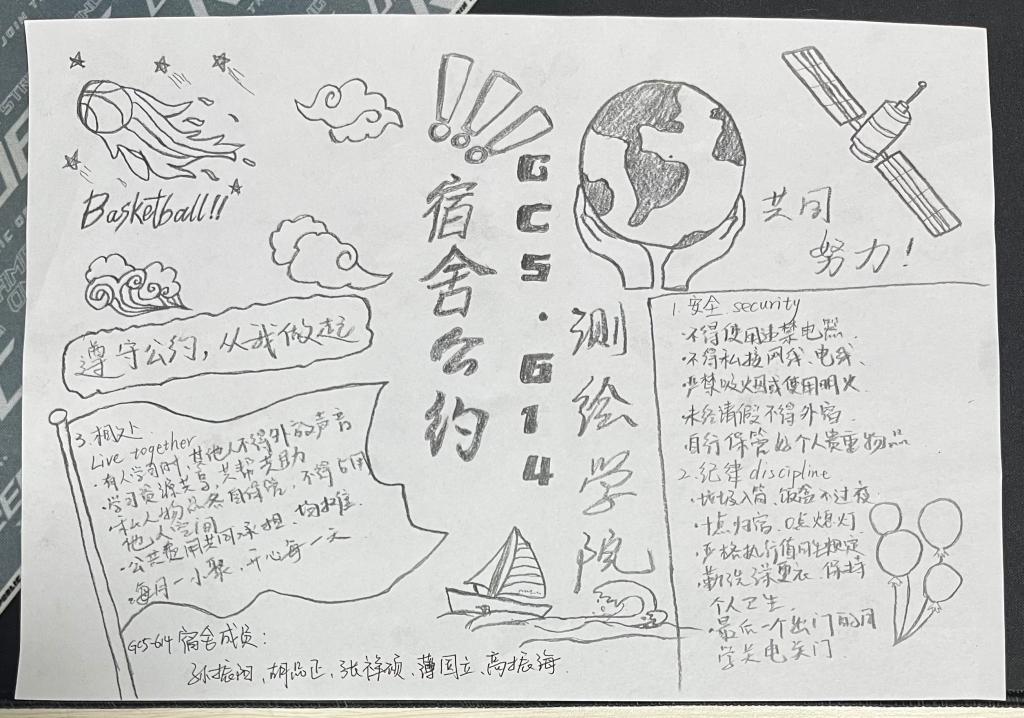 Basketball!!
!!!
宿舍公约
GCS·G14
测绘学院
共同
努力!
遵守公约,从我做起
1.安全 security
·不得使用违禁电器.
·不得私接网线、电线、
·严禁吸烟或使用明火
·未经请假不得外宿
自行保管好个人贵重物品
2.纪律 discipline
·垃圾入筒,饭盒不过夜
·十点归宿、0点熄灯
·严格执行值日生规定
·勤洗澡更衣、保持
个人卫生,
·最后一个出门的同
学关电关门
3.相处
Live together
·有人学习时,其他人不得外放声音
·学习资源共享,共帮共助
·私人物品各自保管,不得占用
他人空间
·公共费用共同承担,均摊.
·每月一小聚,开心每一天
GCS-614 宿舍成员:
孙振闯、胡品正、张祥硕、薄国立、高振海.